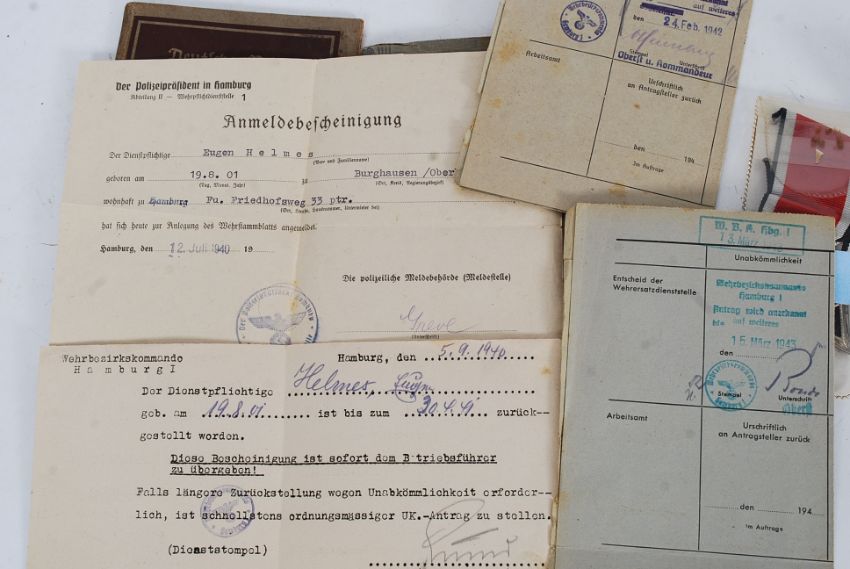 Deutsches
Der Polizeipräsident in Hamburg
Abteilung II — Wehrpflichtdienststelle 1
Anmeldebescheinigung
Der Dienstpflichtige Eugen Helmes
(Vor- und Familienname)
geboren am 19.8.01 zu Burghausen/Ober
(Tag, Monat, Jahr) (Ort, Kreis, Regierungsbezirk)
wohnhaft zu Hamburg Fu. Friedhofsweg 33 ptr.
hat sich heute zur Anlegung des Wehrstammblatts angemeldet.
Hamburg, den 12. Juli 1940 19
Die polizeiliche Meldebehörde (Meldestelle)
Greve
(Unterschrift)
Wehrbezirkskommando
Hamburg I
Hamburg, den 5.9.1940
Der Dienstpflichtige Helmes, Eugen
geb. am 19.8.01 ist bis zum 30.4.41 zurück-
gestellt worden.
Diese Boscheinigung ist sofort dem B triebsführer
zu übergeben!
Falls längere Zurückstellung wogen Unabkömmlichkeit erforder-
lich, ist schnellstens ordnungsmässiger UK.-Antrag zu stellen.
(Dienststompel)
auf weiteres
den 24. Feb. 1942
Stempel Unterschrift
Oberst u. Kommandeur
Arbeitsamt
Urschriftlich
an Antragsteller zurück
den 194
Im Auftrage
W. B. K. Hbg. I
13. März
Unabkömmlichkeit
Entscheid der
Wehrersatzdienststelle
Wehrbezirkskommando
Hamburg I
Antrag wird anerkannt
bis auf weiteres
den 15. März 1943
Stempel Unterschrift
Oberst
Arbeitsamt
Urschriftlich
an Antragsteller zurück
den 194
Im Auftrage